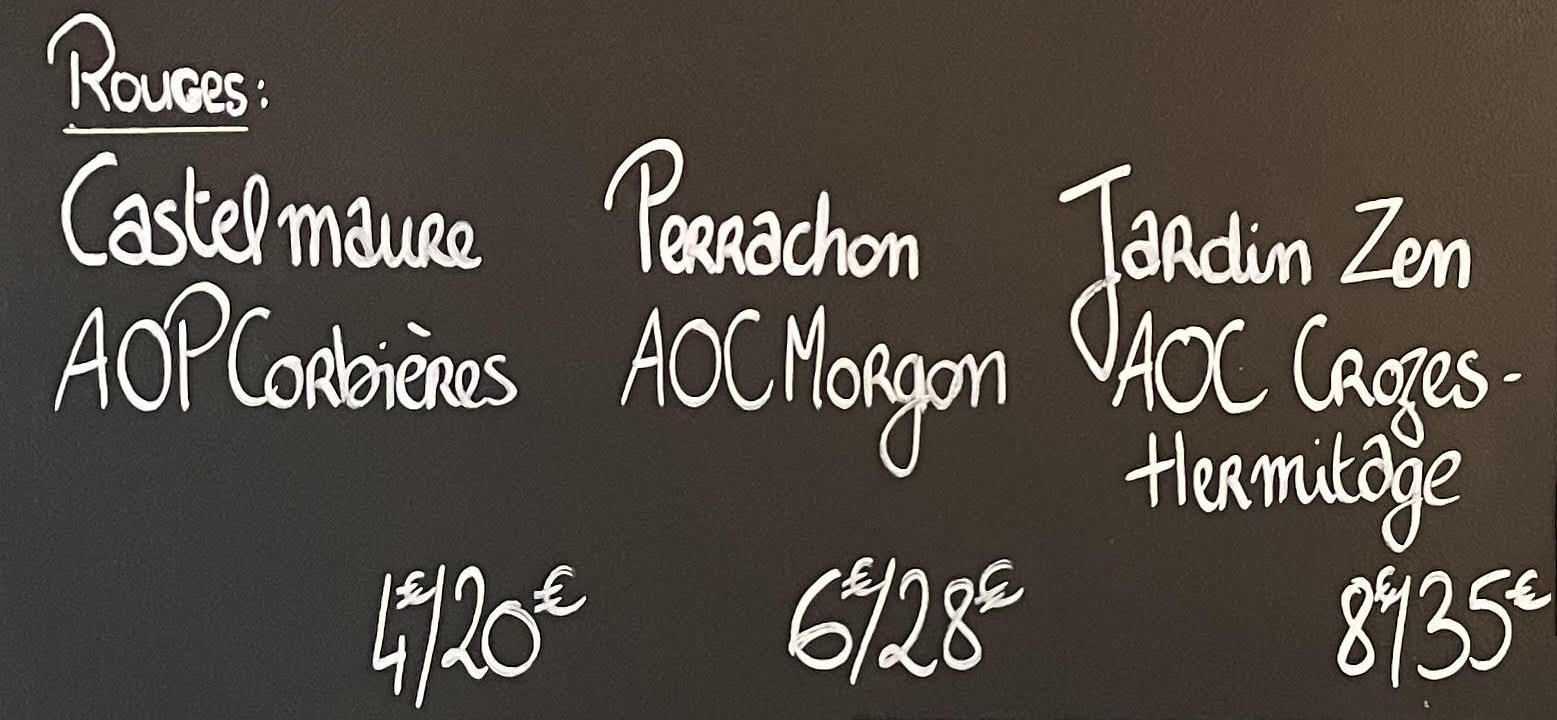 Rouges:
Castelmaure
AOP Corbières
4€/20€
Perrachon
AOC Morgon
6€/28€
Jardin Zen
AOC Crozes-
Hermitage
8€/35€